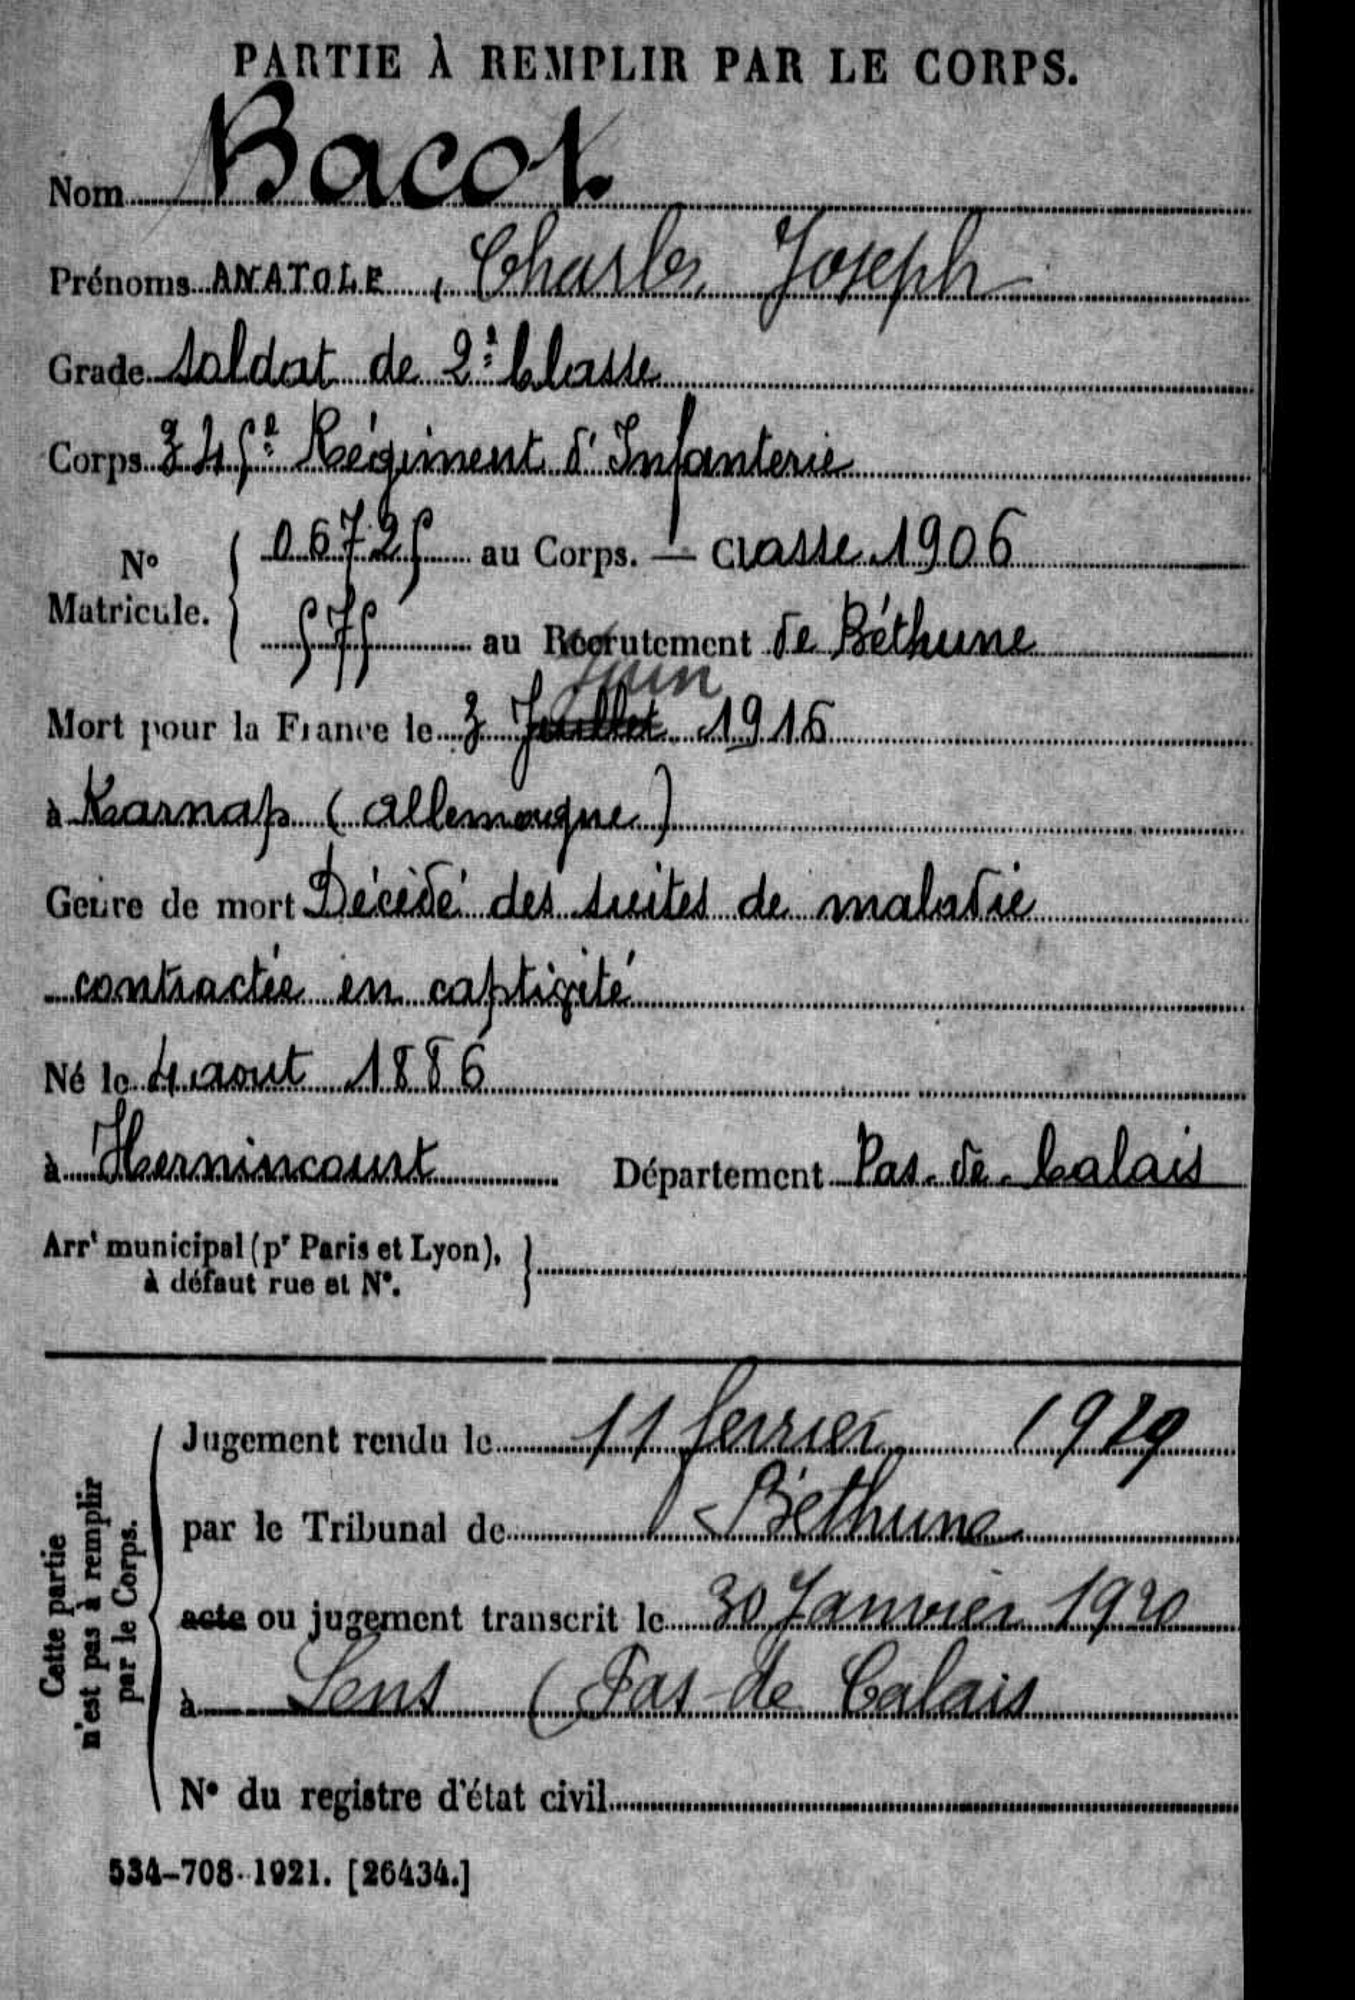 PARTIE À REMPLIR PAR LE CORPS.
Nom Bacot
Prénoms ANATOLE, Charles Joseph
Grade Soldat de 2e Classe
Corps 345e Régiment d'Infanterie
No Matricule. { 06725 au Corps. — Classe 1906
575 au Recrutement de Béthune
Juin
Mort pour la France le 3 Juillet 1916
à Karnap (Allemagne)
Genre de mort Décédé des suites de maladie
contractée en captivité
Né le 4 aout 1886
à Hernincourt Département Pas-de-Calais
Arrt municipal (pr Paris et Lyon), }
à défaut rue et No.
Cette partie
n'est pas à remplir
par le Corps.
Jugement rendu le 11 fevrier 1919
par le Tribunal de Béthune
acte ou jugement transcrit le 30 Janvier 1920
à Lens (Pas-de Calais
No du registre d'état civil
534-708-1921. [26434.]